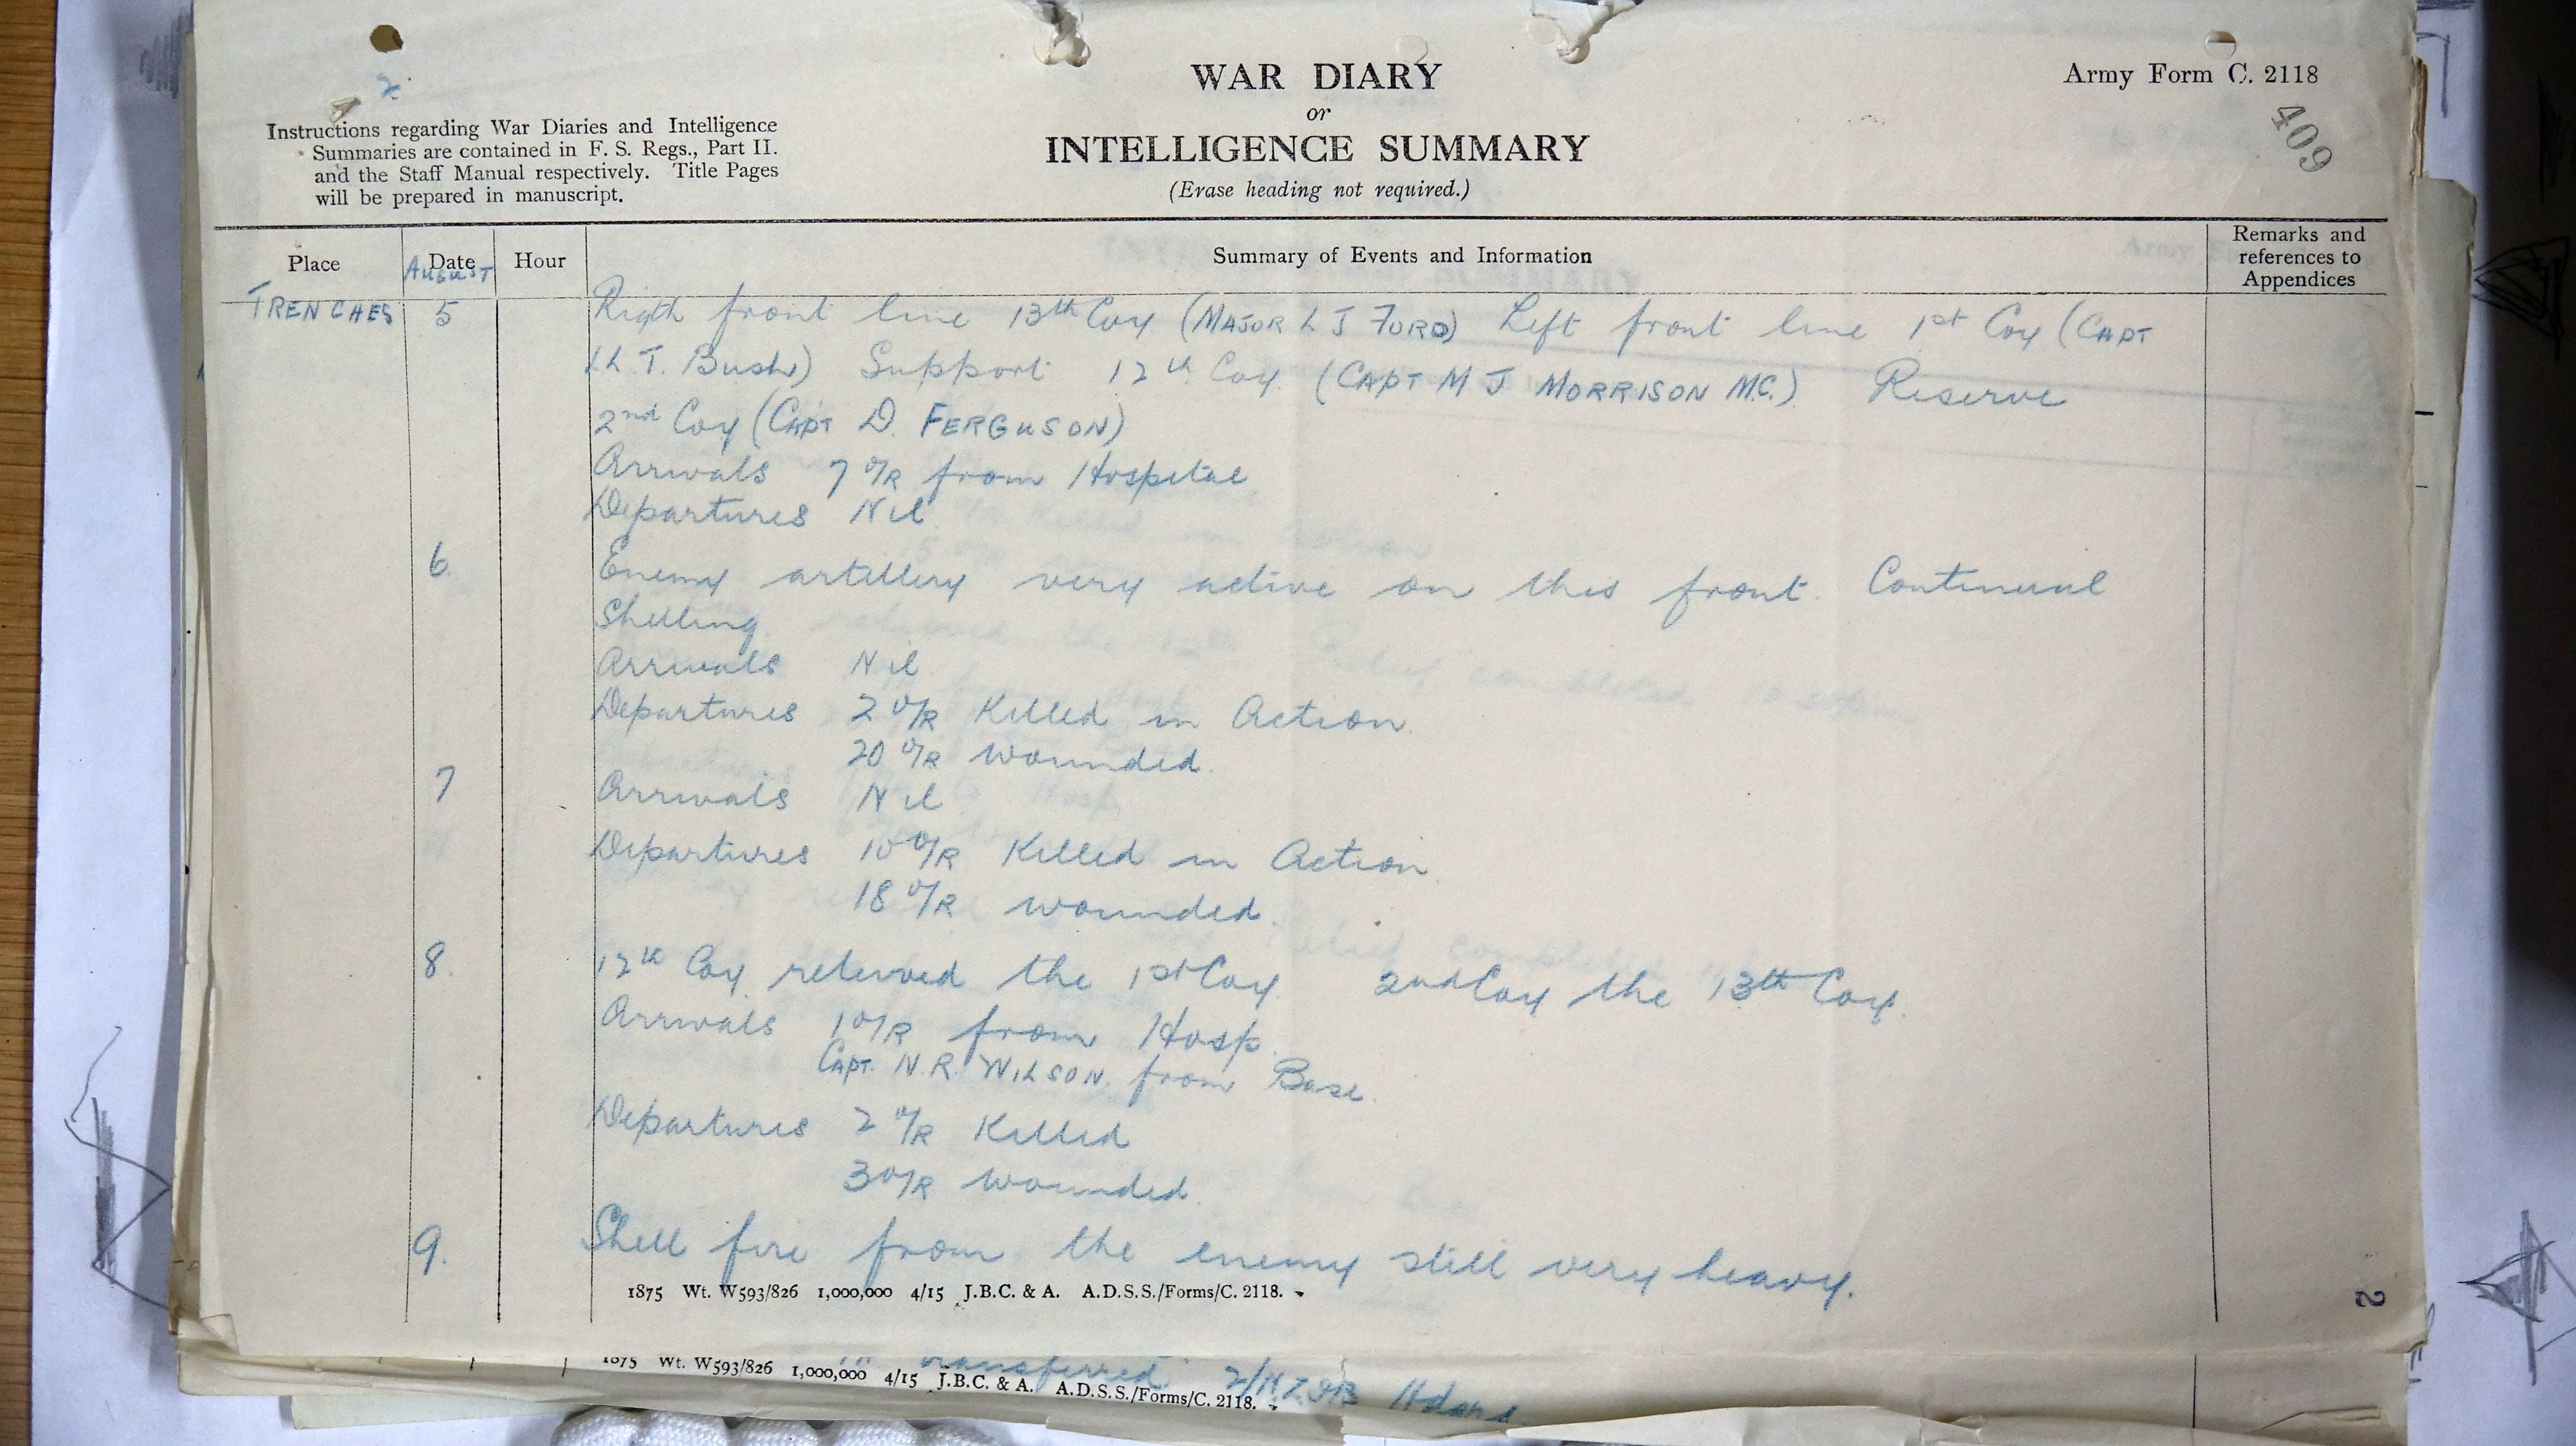 WAR DIARY
or
INTELLIGENCE SUMMARY
(Erase heading not required.)
Army Form C. 2118
409
2
Instructions regarding War Diaries and Intelligence
Summaries are contained in F. S. Regs., Part II.
and the Staff Manual respectively. Title Pages
will be prepared in manuscript.
Place
Date
AUGUST
Hour
Summary of Events and Information
Remarks and
references to
Appendices
TRENCHES 5 Rigth front line 13th Coy (MAJOR L J FORD) Left front line 1st Coy (CAPT
L.T. Bush) Support 12th Coy. (CAPT M J MORRISON M.C.) Reserve
2nd Coy (CAPT D. FERGUSON)
Arrivals 7 O/R from Hospital
Departures Nil
6 Enemy artillery very active on this front. Continual
Shelling
Arrivals Nil
Departures 2 O/R Killed in Action
20 O/R wounded.
7 Arrivals Nil
Departures 10 O/R Killed in Action
18 O/R wounded.
8. 12th Coy relieved the 1st Coy 2nd Coy the 13th Coy.
Arrivals 1 O/R from Hosp
CAPT. N.R. WILSON. from Base.
Departures 2 O/R Killed
3 O/R wounded.
9. Shell fire from the enemy still very heavy.
1875 Wt. W593/826 1,000,000 4/15 J.B.C. & A. A.D.S.S./Forms/C. 2118.
2
transferred
1875 Wt. W593/826 1,000,000 4/15 J.B.C. & A. A.D.S.S./Forms/C. 2118.